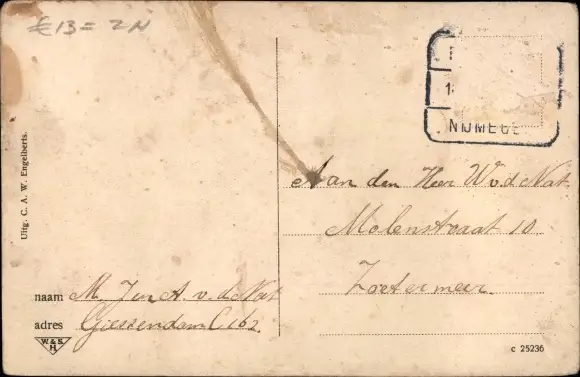 € 13 = ZN
NIJMEGE
Aan den Heer W v. d. Nat
Molenstraat 10
Zoetermeer.
Uitg. C. A. W. Engelberts.
naam M. J en A. v. d. Nat
adres Giessendam C 162
W & S
H
c 25236